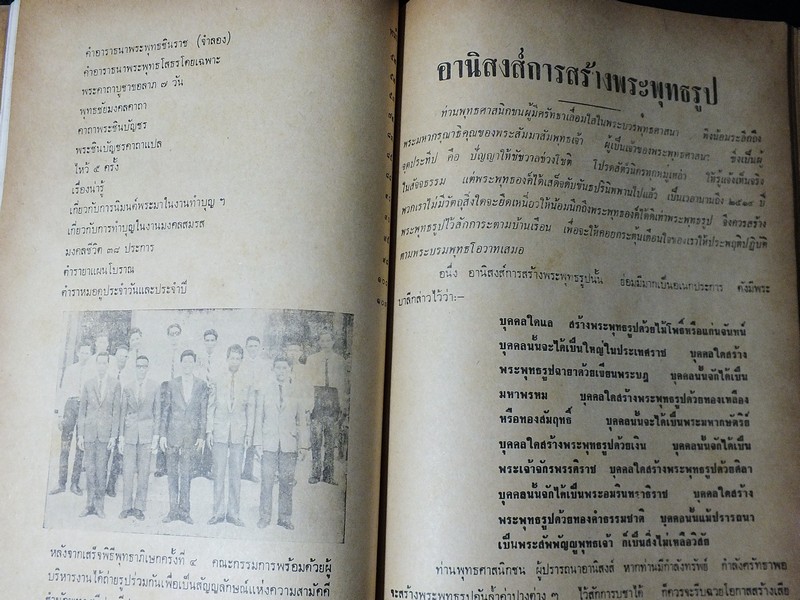 คำอาราธนาพระพุทธชินราช (จำลอง)
คำอาราธนาพระพุทธโสธรโดยเฉพาะ
พระคาถาบูชาขอลาภ ๗ วัน
พุทธชัยมงคลคาถา
คาถาพระชินบัญชร
พระชินบัญชรคาถาแปล
ไหว้ ๕ ครั้ง
เรื่องน่ารู้
เกี่ยวกับการนิมนต์พระมาในงานทำบุญ ๆ
เกี่ยวกับการทำบุญในงานมงคลสมรส
มงคลชีวิต ๓๘ ประการ
ตำรายาแผนโบราณ
ตำราหมอดูประจำวันและประจำปี
หลังจากเสร็จพิธีพุทธาภิเษกครั้งที่ ๔ คณะกรรมการพร้อมด้วยผู้
บริหารงานได้ถ่ายรูปร่วมกันเพื่อเป็นสัญญลักษณ์แห่งความสามัคคี
อานิสงส์การสร้างพระพุทธรูป
ท่านพุทธศาสนิกชนผู้มีศรัทธาเลื่อมใสในพระบวรพุทธศาสนา พึงน้อมระลึกถึง
พระมหากรุณาธิคุณของพระสัมมาสัมพุทธเจ้า ผู้เป็นเจ้าของพระพุทธศาสนา ซึ่งเป็นผู้
จุดประทีป คือ ปัญญาให้ชัชวาลช่วงโชติ โปรดสัตว์นิกรทุกหมู่เหล่า ให้รู้แจ้งเห็นจริง
ในสัจธรรม แต่พระพุทธองค์ได้เสด็จดับขันธปรินิพพานไปแล้ว เป็นเวลานานถึง ๒๕๑๕ ปี
พวกเราไม่มีวัตถุสิ่งใดจะยึดเหนี่ยวให้น้อมนึกถึงพระพุทธองค์ได้ดีเท่าพระพุทธรูป จึงควรสร้าง
พระพุทธรูปไว้สักการะตามบ้านเรือน เพื่อจะให้คอยกระตุ้นเตือนใจของเราให้ประพฤติปฏิบัติ
ตามพระบรมพุทธโอวาทเสมอ
อนึ่ง อานิสงส์การสร้างพระพุทธรูปนั้น ย่อมมีมากเป็นอเนกประการ ดังมีพระ
บาลีกล่าวไว้ว่า:–
บุคคลใดแล สร้างพระพุทธรูปด้วยไม้โพธิ์หรือแก่นจันทน์
บุคคลนั้นจะได้เป็นใหญ่ในประเทศราช บุคคลใดสร้าง
พระพุทธรูปฉายาด้วยเขียนพระบฎ บุคคลนั้นจักได้เป็น
มหาพรหม บุคคลใดสร้างพระพุทธรูปด้วยทองเหลือง
หรือทองสัมฤทธิ์ บุคคลนั้นจะได้เป็นพระมหากษัตริย์
บุคคลใดสร้างพระพุทธรูปด้วยเงิน บุคคลนั้นจักได้เป็น
พระเจ้าจักรพรรดิราช บุคคลใดสร้างพระพุทธรูปด้วยศิลา
บุคคลนั้นจักได้เป็นพระอมรินทราธิราช บุคคลใดสร้าง
พระพุทธรูปด้วยทองคำธรรมชาติ บุคคลนั้นแม้ปรารถนา
เป็นพระสัพพัญญูพุทธเจ้า ก็เป็นสิ่งไม่เหลือวิสัย
ท่านพุทธศาสนิกชน ผู้ปรารถนาอานิสงส์ หากท่านมีกำลังทรัพย์ กำลังศรัทธาพอ
จะสร้างพระพุทธรูปอันล้ำค่าปางต่าง ๆ ไว้สักการบูชาได้ ก็ควรจะรีบฉวยโอกาสสร้างเสีย